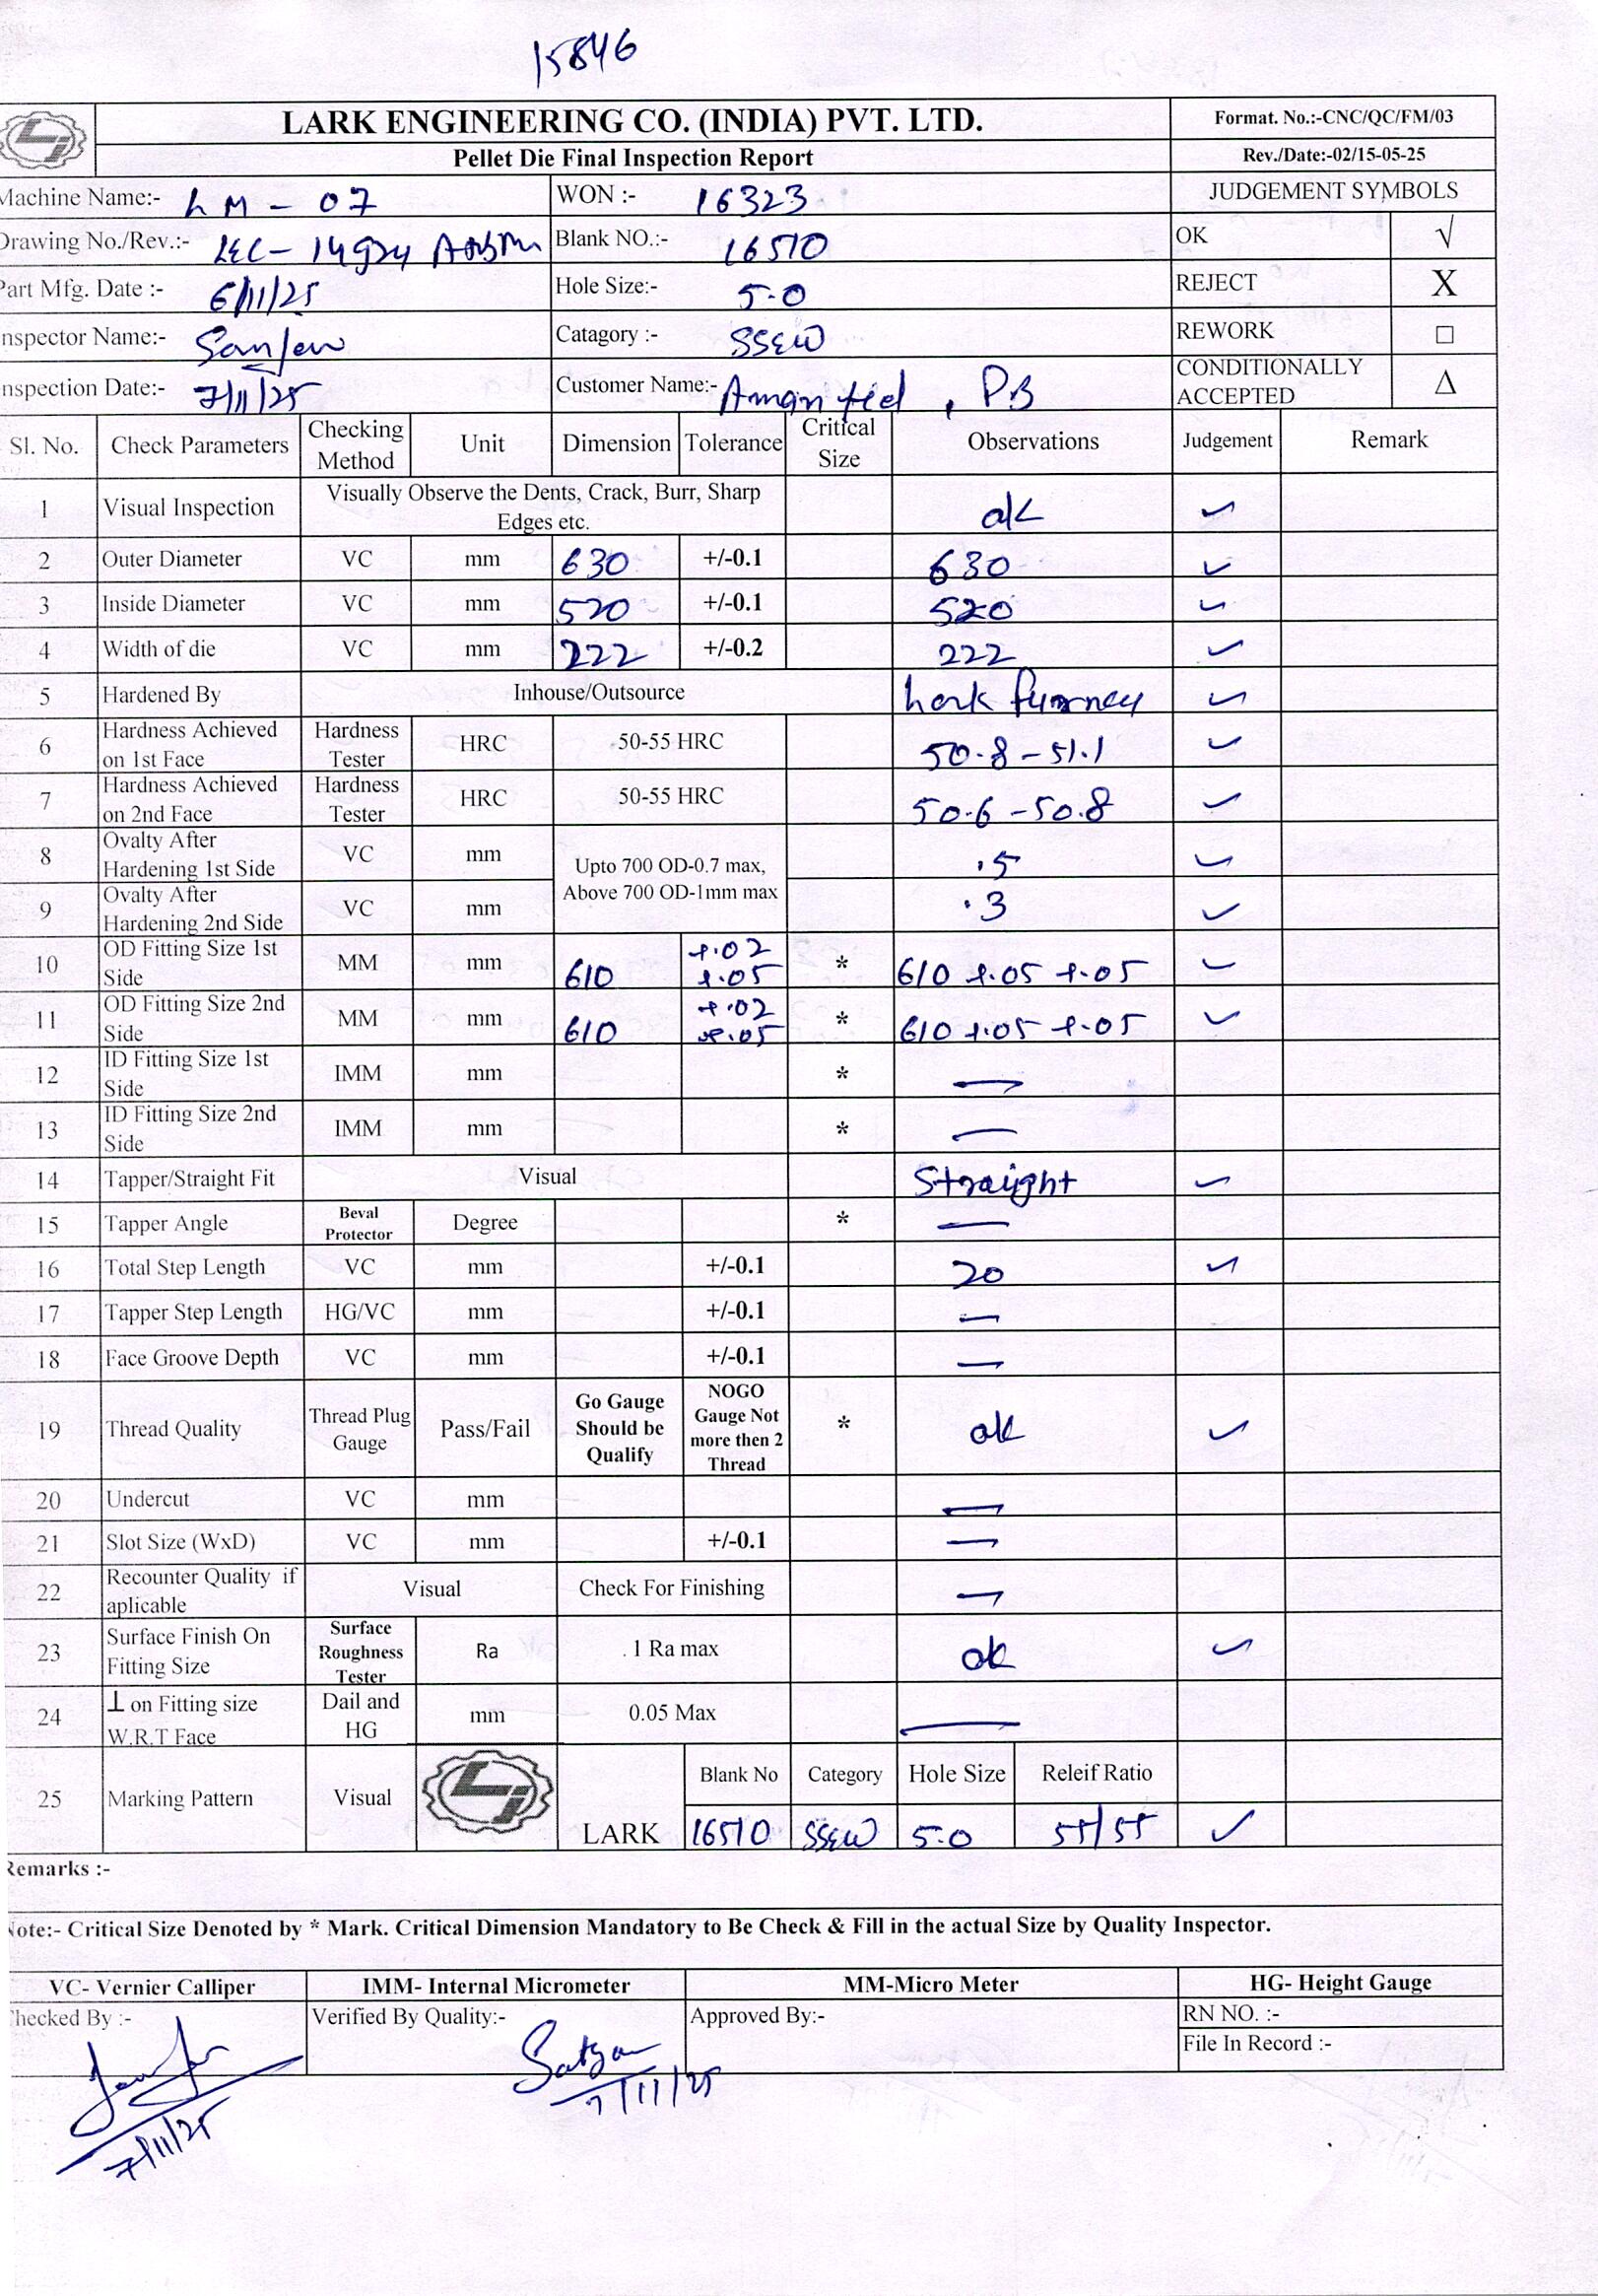 15846
LARK ENGINEERING CO. (INDIA) PVT. LTD.
Format. No.:-CNC/QC/FM/03
Pellet Die Final Inspection Report
Rev./Date:-02/15-05-25
Machine Name:- LM - 07 WON :- 16323 JUDGEMENT SYMBOLS
Drawing No./Rev.:- LEC- 14924 Blank NO.:- 16510 OK √
Part Mfg. Date :- 6/11/25 Hole Size:- 5.0 REJECT X
Inspector Name:- Sanjeev Catagory :- SSEW REWORK □
Inspection Date:- 7/11/25 Customer Name:- Aman feed, PB CONDITIONALLY ACCEPTED Δ
Sl. No. Check Parameters Checking Method Unit Dimension Tolerance Critical Size Observations Judgement Remark
1 Visual Inspection Visually Observe the Dents, Crack, Burr, Sharp Edges etc. ok ✓
2 Outer Diameter VC mm 630 +/-0.1 630 ✓
3 Inside Diameter VC mm 520 +/-0.1 520 ✓
4 Width of die VC mm 222 +/-0.2 222 ✓
5 Hardened By Inhouse/Outsource Lark ✓
6 Hardness Achieved on 1st Face Hardness Tester HRC 50-55 HRC 50.8-51.1 ✓
7 Hardness Achieved on 2nd Face Hardness Tester HRC 50-55 HRC 50.6-50.8 ✓
8 Ovalty After Hardening 1st Side VC mm Upto 700 OD-0.7 max, Above 700 OD-1mm max .5 ✓
9 Ovalty After Hardening 2nd Side VC mm .3 ✓
10 OD Fitting Size 1st Side MM mm 610 +.02 +.05 * 610 +.05 +.05 ✓
11 OD Fitting Size 2nd Side MM mm 610 +.02 +.05 * 610 +.05 +.05 ✓
12 ID Fitting Size 1st Side IMM mm * —
13 ID Fitting Size 2nd Side IMM mm * —
14 Tapper/Straight Fit Visual Straight ✓
15 Tapper Angle Beval Protector Degree * —
16 Total Step Length VC mm +/-0.1 20 ✓
17 Tapper Step Length HG/VC mm +/-0.1 —
18 Face Groove Depth VC mm +/-0.1 —
19 Thread Quality Thread Plug Gauge Pass/Fail Go Gauge Should be Qualify NOGO Gauge Not more then 2 Thread * ok ✓
20 Undercut VC mm —
21 Slot Size (WxD) VC mm +/-0.1 —
22 Recounter Quality if aplicable Visual Check For Finishing —
23 Surface Finish On Fitting Size Surface Roughness Tester Ra .1 Ra max ok ✓
24 ⊥ on Fitting size W.R.T Face Dail and HG mm 0.05 Max —
25 Marking Pattern Visual LARK Blank No Category Hole Size Releif Ratio
16510 SSEW 5.0 55/55 ✓
Remarks :-
Note:- Critical Size Denoted by * Mark. Critical Dimension Mandatory to Be Check & Fill in the actual Size by Quality Inspector.
VC- Vernier Calliper IMM- Internal Micrometer MM-Micro Meter HG- Height Gauge
Checked By :- Verified By Quality:- Approved By:- RN NO. :-
File In Record :-
Satyam
7/11/25
7/11/25